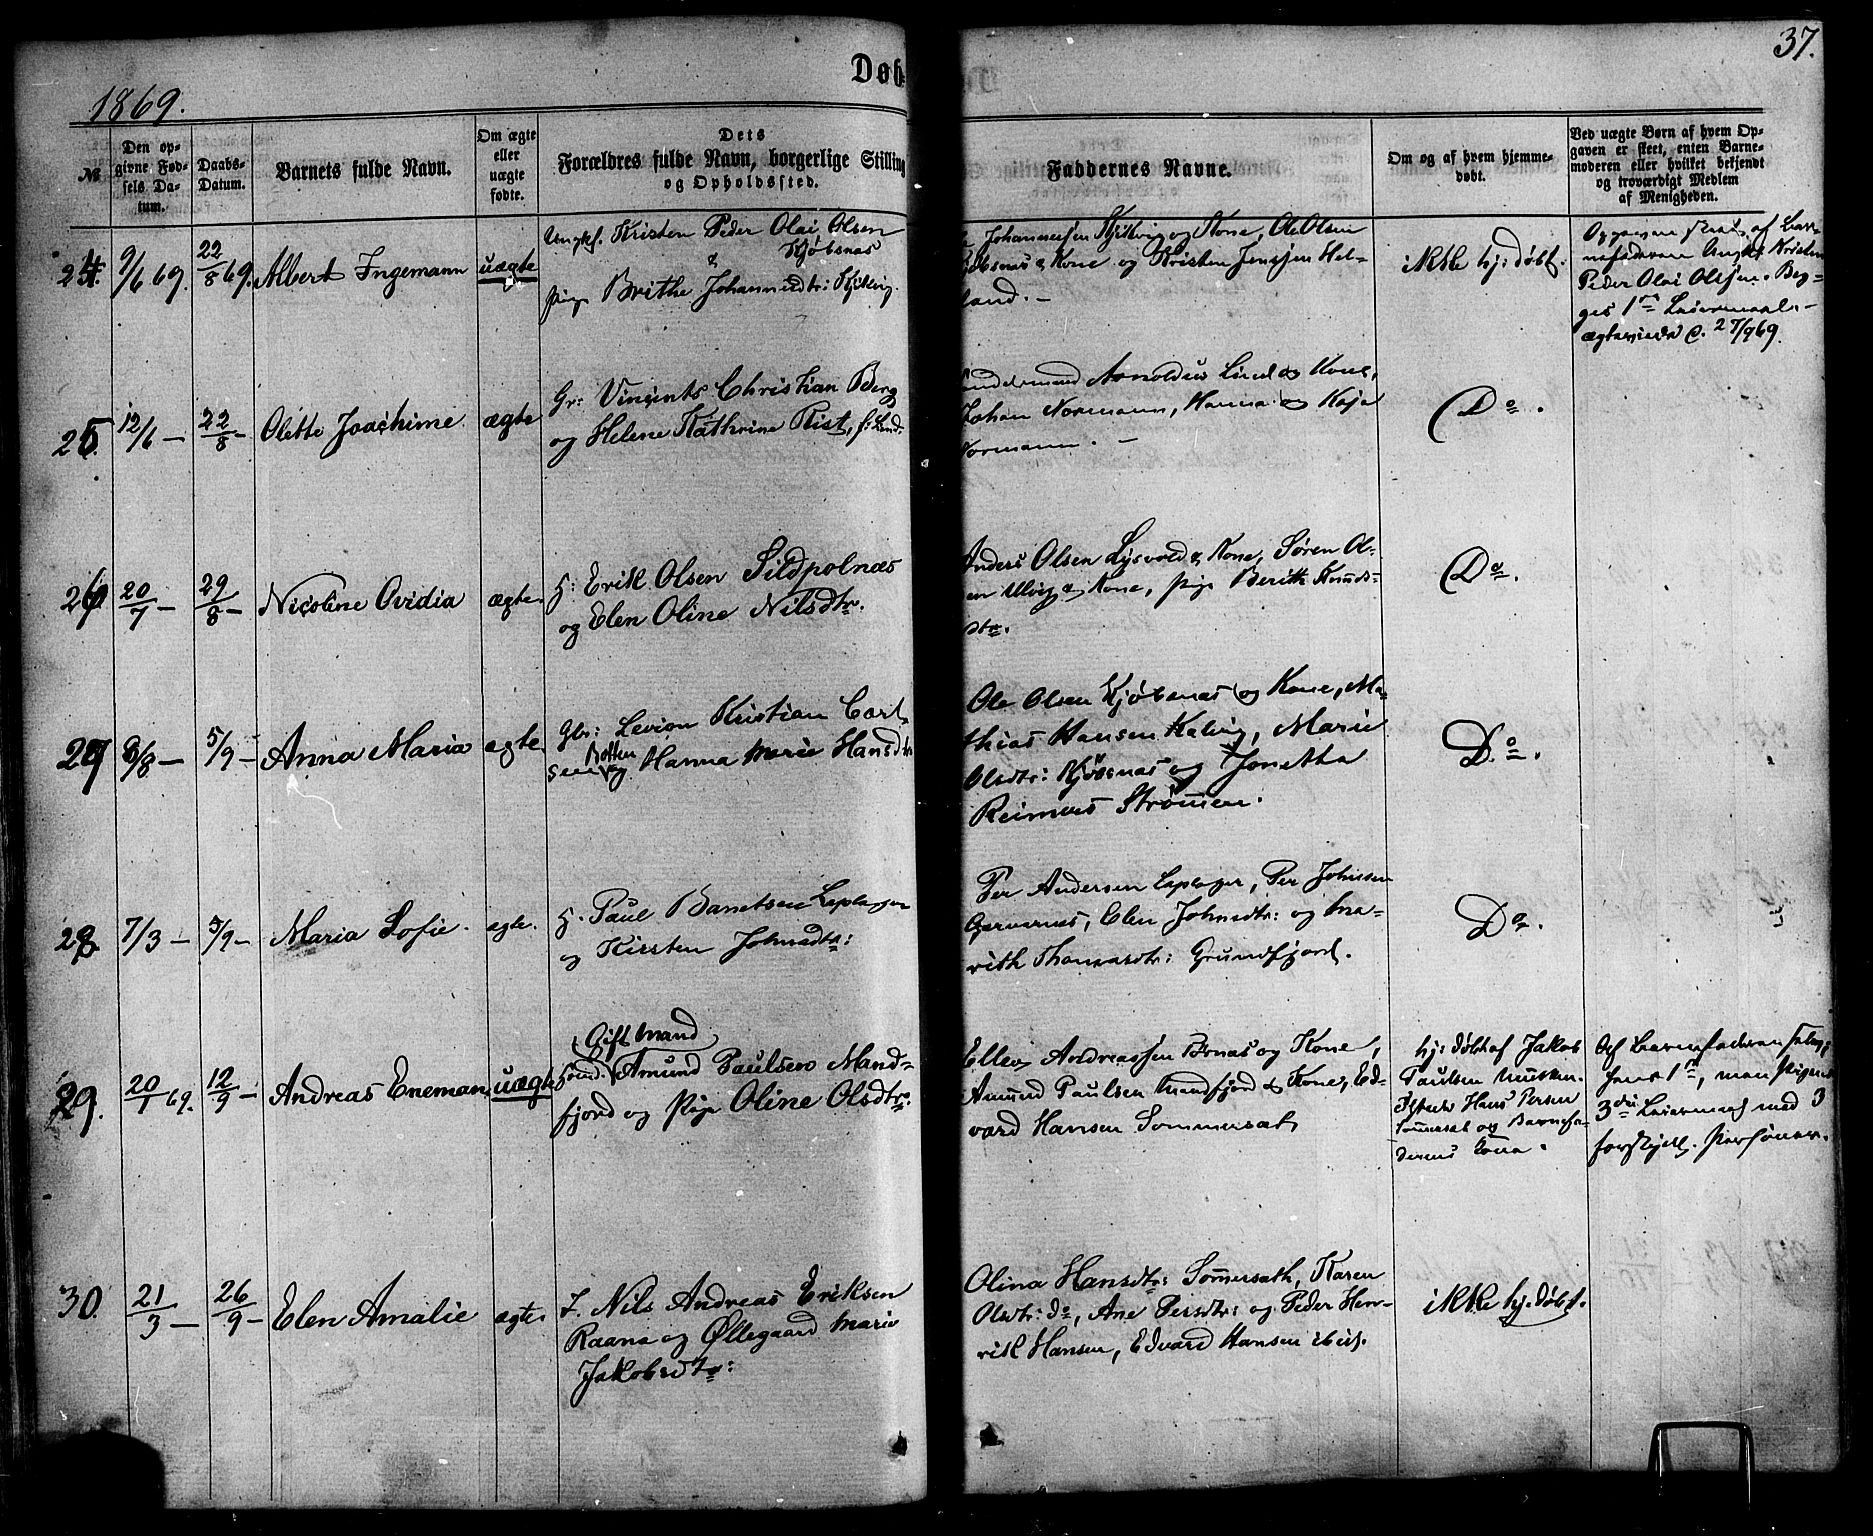 1869.
Døb
37.
№
Den op-
givne Fød-
sels Da-
tum.
Daabs-
Datum.
Barnets fulde Navn.
Om ægte
eller
uægte
fødte.
Dets
Forældres fulde Navn, borgerlige Stilling
og Opholdssted.
Faddernes Navne.
Om og af hvem hjemme-
døbt.
Ved uægte Børn af hvem Op-
gaven er skeet, enten Barne-
moderen eller hvilket bekjendt
og troværdigt Medlem
af Menigheden.
24. 9/6 69. 22/8 69. Albert Ingemann uægte
Ungkf. Kristen Peder Olai Olsen
Kjøbsnæs
&
Pige Brithe Johannesdtr:
Johannessen og Kone, Ole Olsen
& Kone og Kristen Jenssen Hel-
land. -
ikke hj: døbt.
af Bar-
nefaderen Ungkf Kristen
Peder Olai Olssen. Beg-
ges 1ste Leiermaal. -
27/9 69.
25. 12/6 - 22/8 - Olette Joachime. ægte
Gr: Vincents Christian Berg
og Helene Kathrine Rist, f: Lind.
Arnoldus Lind og Kone,
Johan Normann, Hanna og Kaja
Normann. -
Do.
26. 20/7 - 29/8 - Nicoline Ovidia ægte.
H: Erik Olsen Sildpolnæs
og Elen Oline Nilsdtr.
Anders Olsen Lysvold & Kone, Søren Ol-
en Ulvig & Kone, Pige Berith Knuds-
dtr.
Do.
27 8/8 - 5/9 - Anna Maria ægte.
Gbr: Levion Kristian Carl-
sen Botten og Hanna Marie Hansdtr
Ole Olsen Kjøbsnæs og Kone, Ma-
thias Hansen Kalvig, Marie
Olsdtr: Kjøbsnæs og Jonetha
Reimers Strømen.
Do.
28. 7/3 - 5/9 - Maria Sofie. ægte.
H. Paul Banetsen
og Kirsten Johnsdtr:
Per Andersen Per Johnsen
Elen Johnsdtr: og Ma-
rith Thomasdtr: Grundfjord.
Do.
29. 20/1 69. 12/9 - Andreas Eneman. uægte
Gift Mand
Amund Paulsen Mand-
fjord og Pige Oline Olsdtr.
Ellev Andreassen Bønæs og Kone,
Amund Paulsen Mandfjord & Kone, Ed-
vard Hansen Sommersæt,
hj: døbt af Jakob
Paulsen
Hans Persen
Sommersæt og Barnefa-
derens Kone.
Af Barnefaderen
hans 1ste, men Pigens
3die Leiermaal med 3
forskjell. Personer.
30. 21/3 - 26/9 - Elen Amalie ægte.
I. Nils Andreas Eriksen
Raana og Øllegaard Marie
Jakobsdtr:
Olina Hansdtr: Sommersæth, Karen
Olsdtr: do, Ane Persdtr: og Peder Hen-
rik Hansen, Edvard Hansen ibid.
ikke hj. døbt.